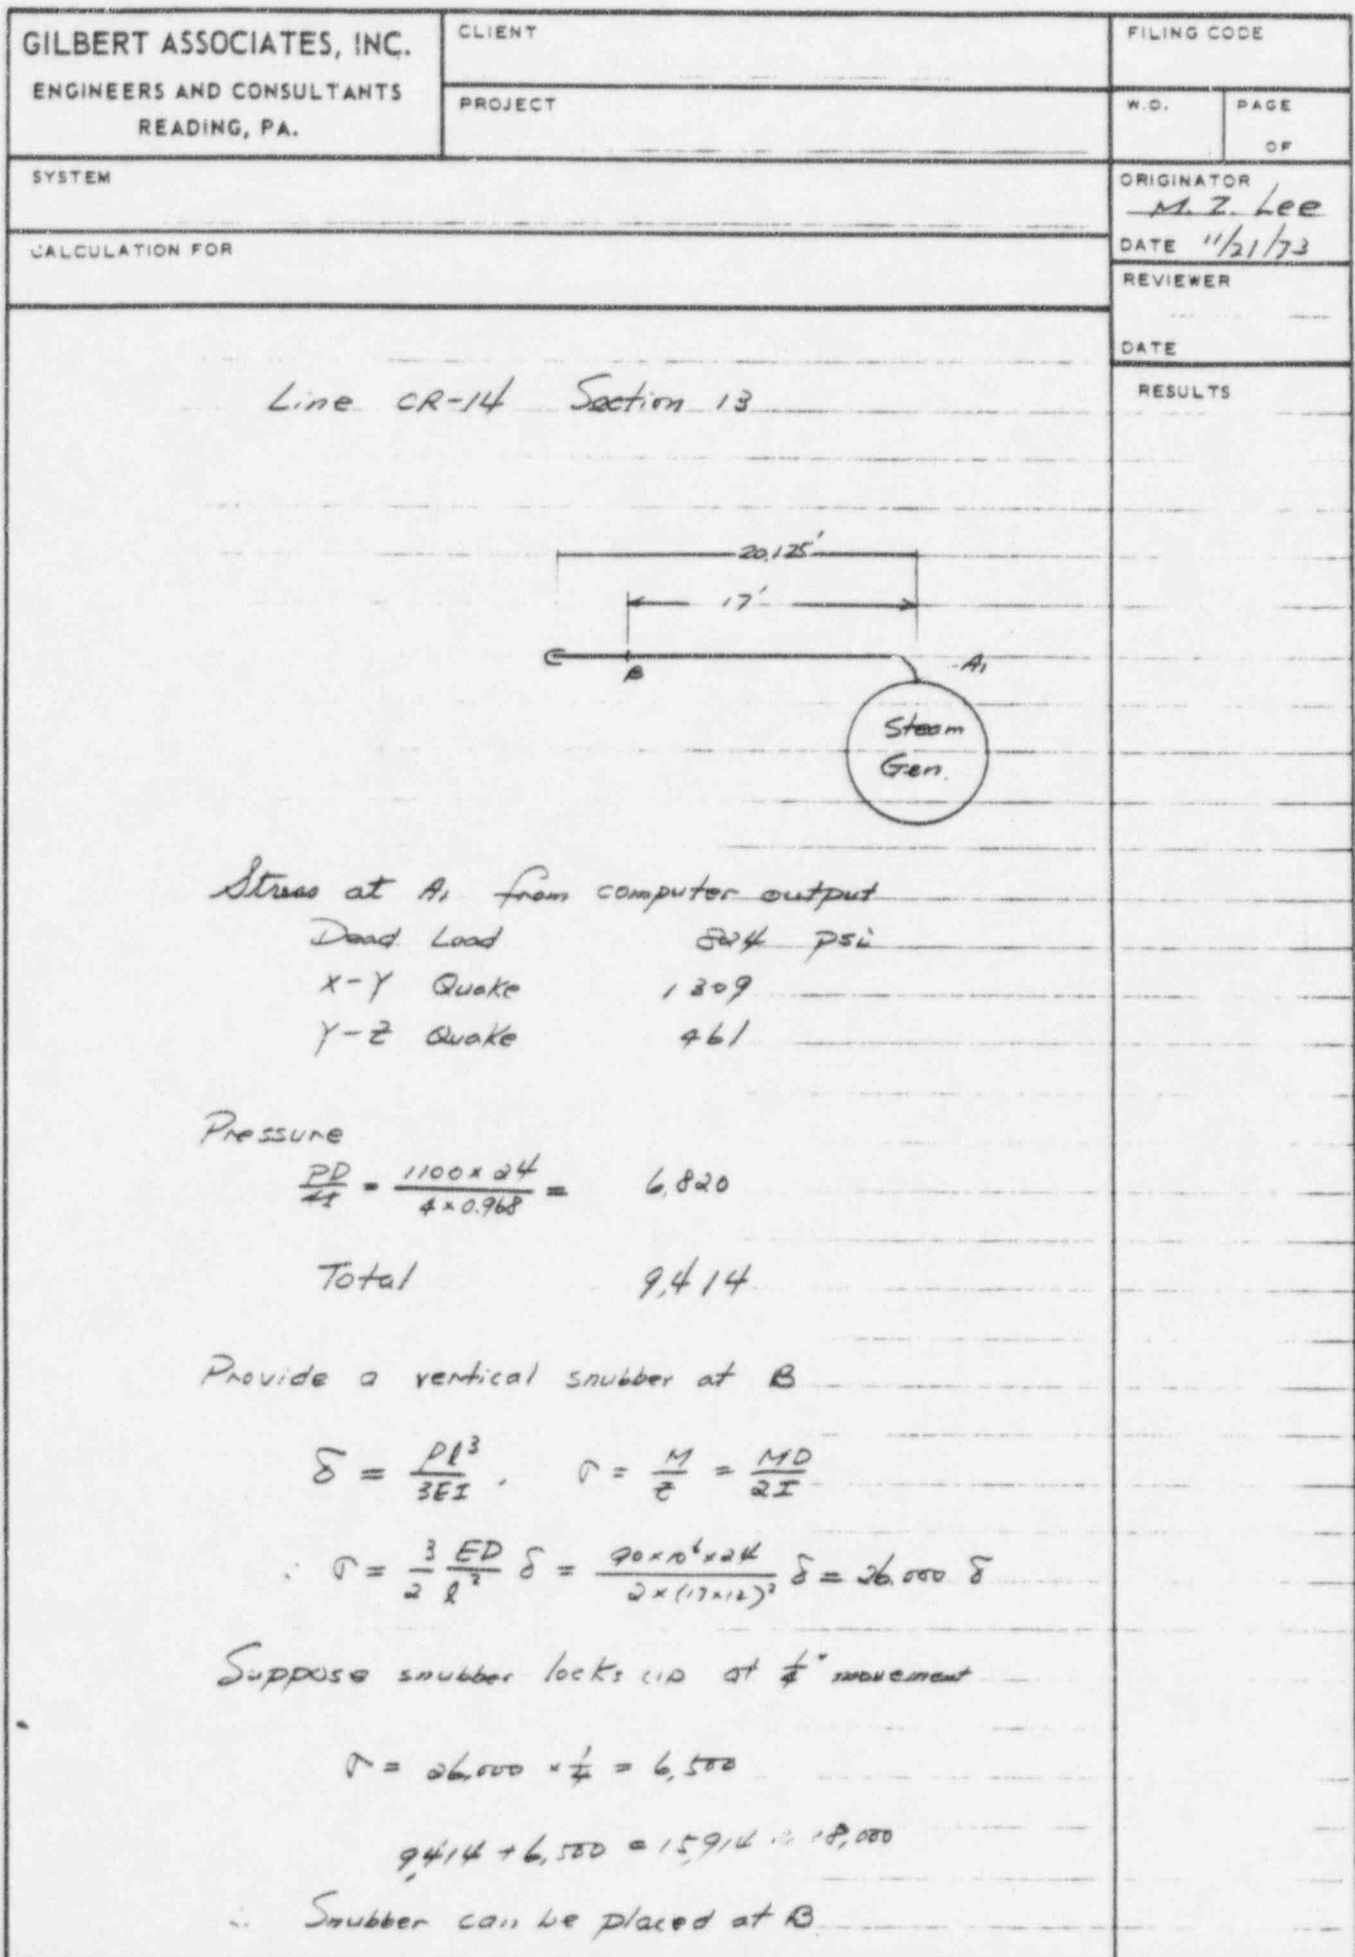 GILBERT ASSOCIATES, INC.
ENGINEERS AND CONSULTANTS
READING, PA.
CLIENT
PROJECT
FILING CODE
W.O.
PAGE
OF
SYSTEM
ORIGINATOR
M. Z. Lee
DATE 11/21/73
CALCULATION FOR
REVIEWER
DATE
RESULTS
Line CR-14 Section 13
20.125'
17'
C
B
A₁
Steam
Gen.
Stress at A₁ from computer output
Dead Load 824 psi
X-Y Quake 1309
Y-Z Quake 461
Pressure
PD/4t = 1100 × 24 / 4 × 0.968 = 6,820
Total 9,414
Provide a vertical snubber at B
δ = Pl³/3EI . σ = M/Z = MD/2I
∴ σ = 3/2 ED/l² δ = 90×10⁶×24 / 2×(17×12)² δ = 26,000 δ
Suppose snubber locks up at 1/4" movement
σ = 26,000 × 1/4 = 6,500
9,414 + 6,500 = 15,914 18,000
∴ Snubber can be placed at B